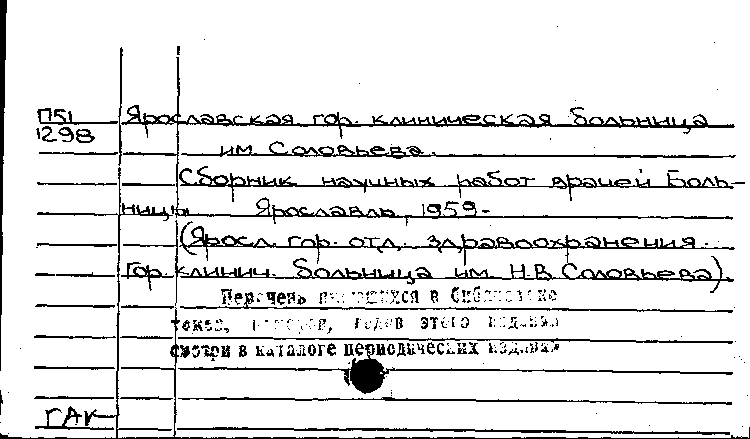 П51 Ярославская гор. клиническая больница
1298 им. Соловьева.
Сборник научных работ врачей Боль-
ницы Ярославль, 1959-
(Яросл. гор. отд. здравоохранения.
Гор. клинич. больница им. Н.В. Соловьева).
Перечень имеющихся в библиотеке
томов, номеров, годов этого издания
смотри в каталоге периодических изданий
ГАК